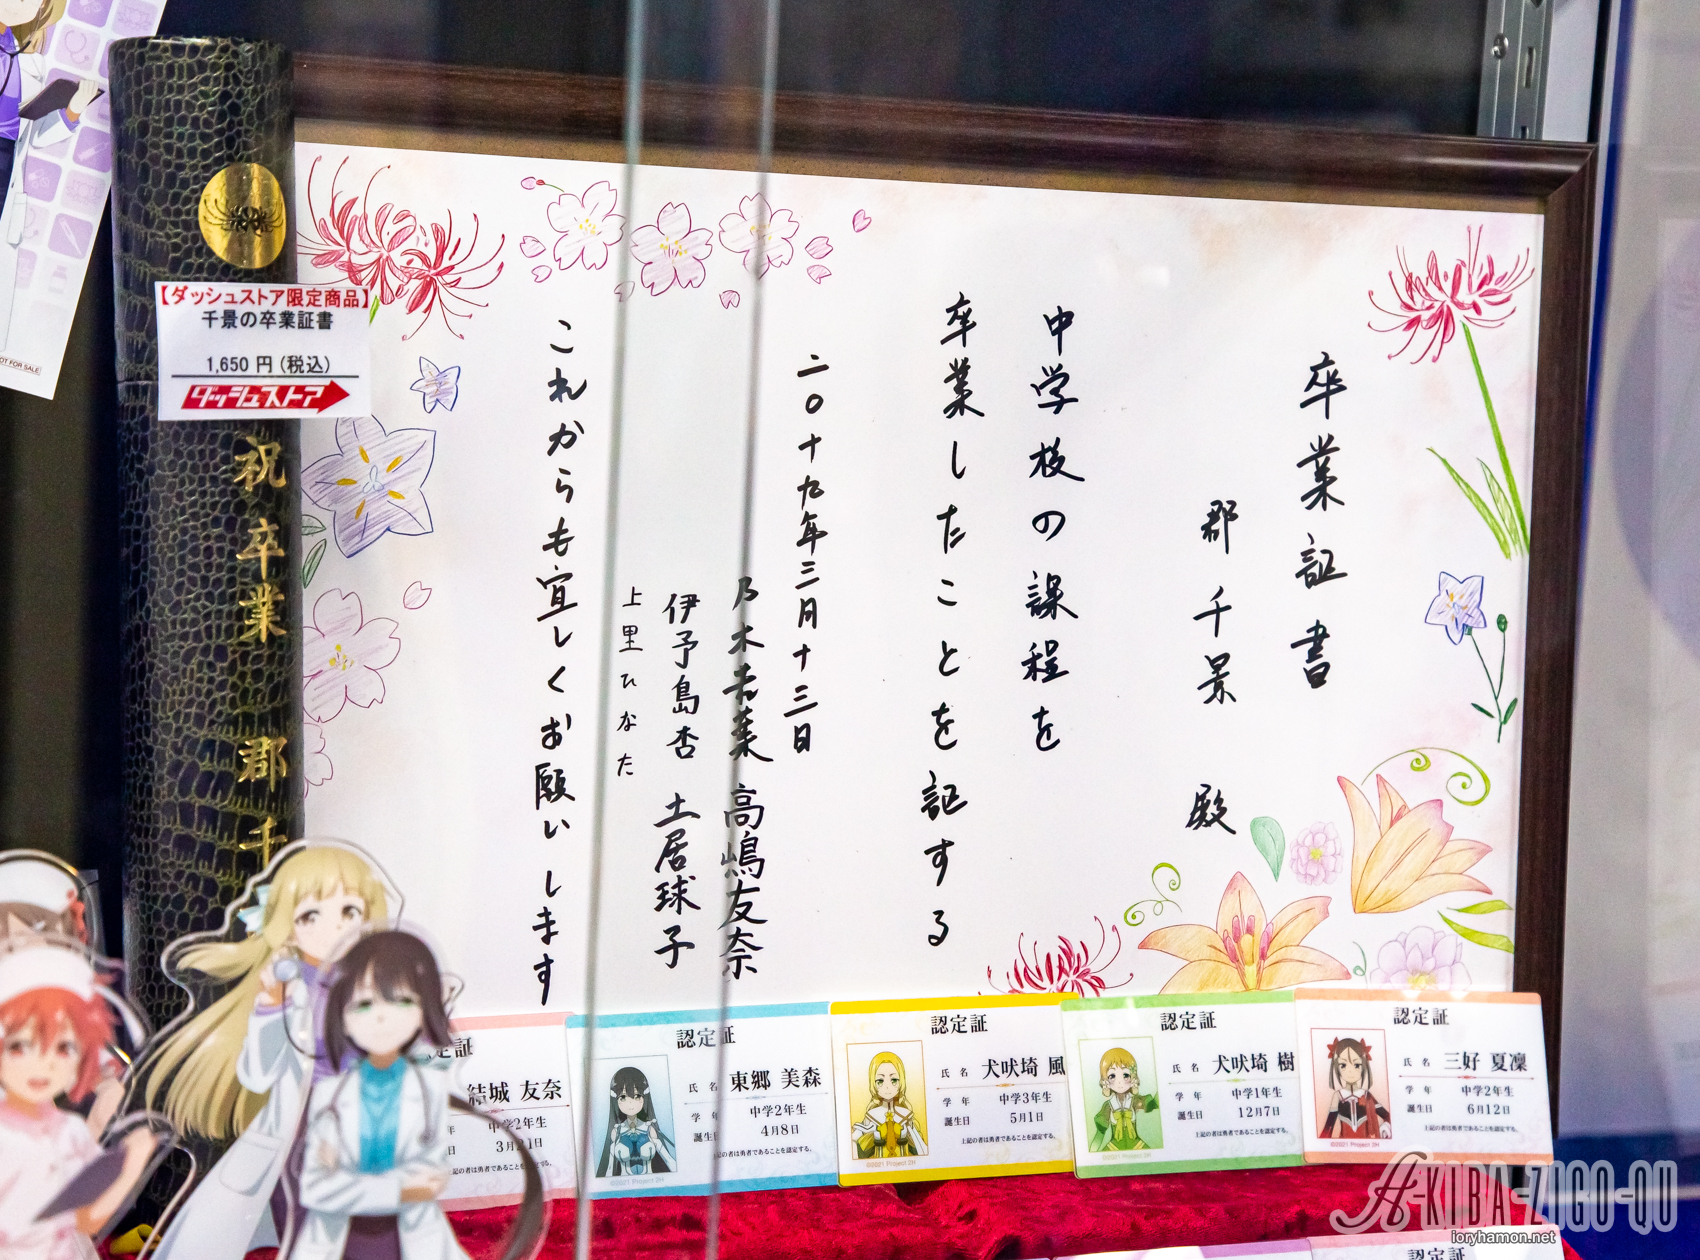 OT FOR SALE
【ダッシュストア限定商品】
千景の卒業証書
1,650 円 (税込)
ダッシュストア
祝 卒業 郡 千
卒業証書
郡千景 殿
中学校の課程を
卒業したことを証する
二〇十九年三月十三日
乃木若葉 高嶋友奈
伊予島杏 土居球子
上里ひなた
これからも宜しくお願いします
定証
結城 友奈
年 中学2年生
日 3月21日
上記の者は勇者であることを認定する。
認定証
氏 名 東郷 美森
学 年 中学2年生
誕生日 4月8日
上記の者は勇者であることを認定する。
©2021 Project 2H
認定証
氏 名 犬吠埼 風
学 年 中学3年生
誕生日 5月1日
上記の者は勇者であることを認定する。
©2021 Project 2H
認定証
氏 名 犬吠埼 樹
学 年 中学1年生
誕生日 12月7日
上記の者は勇者であることを認定する。
©2021 Project 2H
認定証
氏 名 三好 夏凜
学 年 中学2年生
誕生日 6月12日
上記の者は勇者であることを認定する。
©2021 Project 2H
認定証
A-KIBA-ZIGO-QU
ioryhamon.net